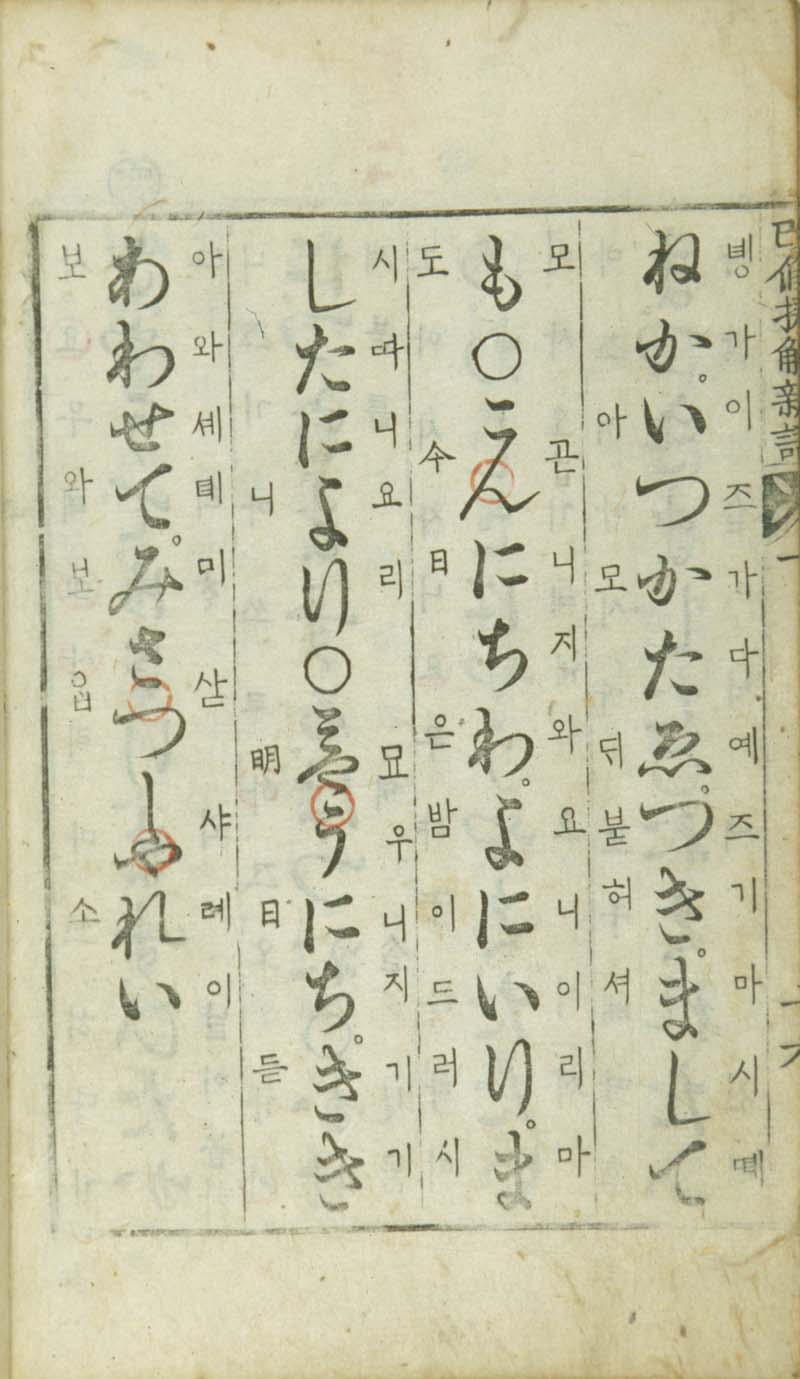 捷解新語
가이즈가다예즈기마시뎨
ねか。いつかたゑ。つき。まして
아모뒤붇허셔
모곤니지와요니이리마
も○こんにちわ。よにいり。ま
도今日은밤이드러시
시따니요리묘우니지기기
したにより○みやうにち。きき
니明日듣
아와셰뎨미삳샤레이
あわせて。みさつしやれい
보와보ᄋᆞᆸ소